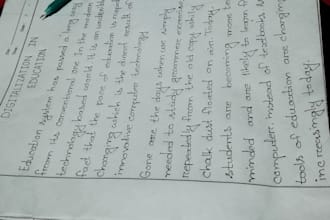 DIGITALIZATION IN
EDUCATION
Education system has passed a long way
from its conventional one. In the modern
technology based world it is an undeniable
fact that the pace of education is rapidly
changing which is the direct result of
innovative computer technology.
Gone are the days when we simply
needed to study grammar exercises
repeatedly from the old copy while
chalk dust floated on air. Today,
students are becoming more tech
minded and are likely to learn from
computer. Instead of textbooks the
tools of education are changing
increasingly today.